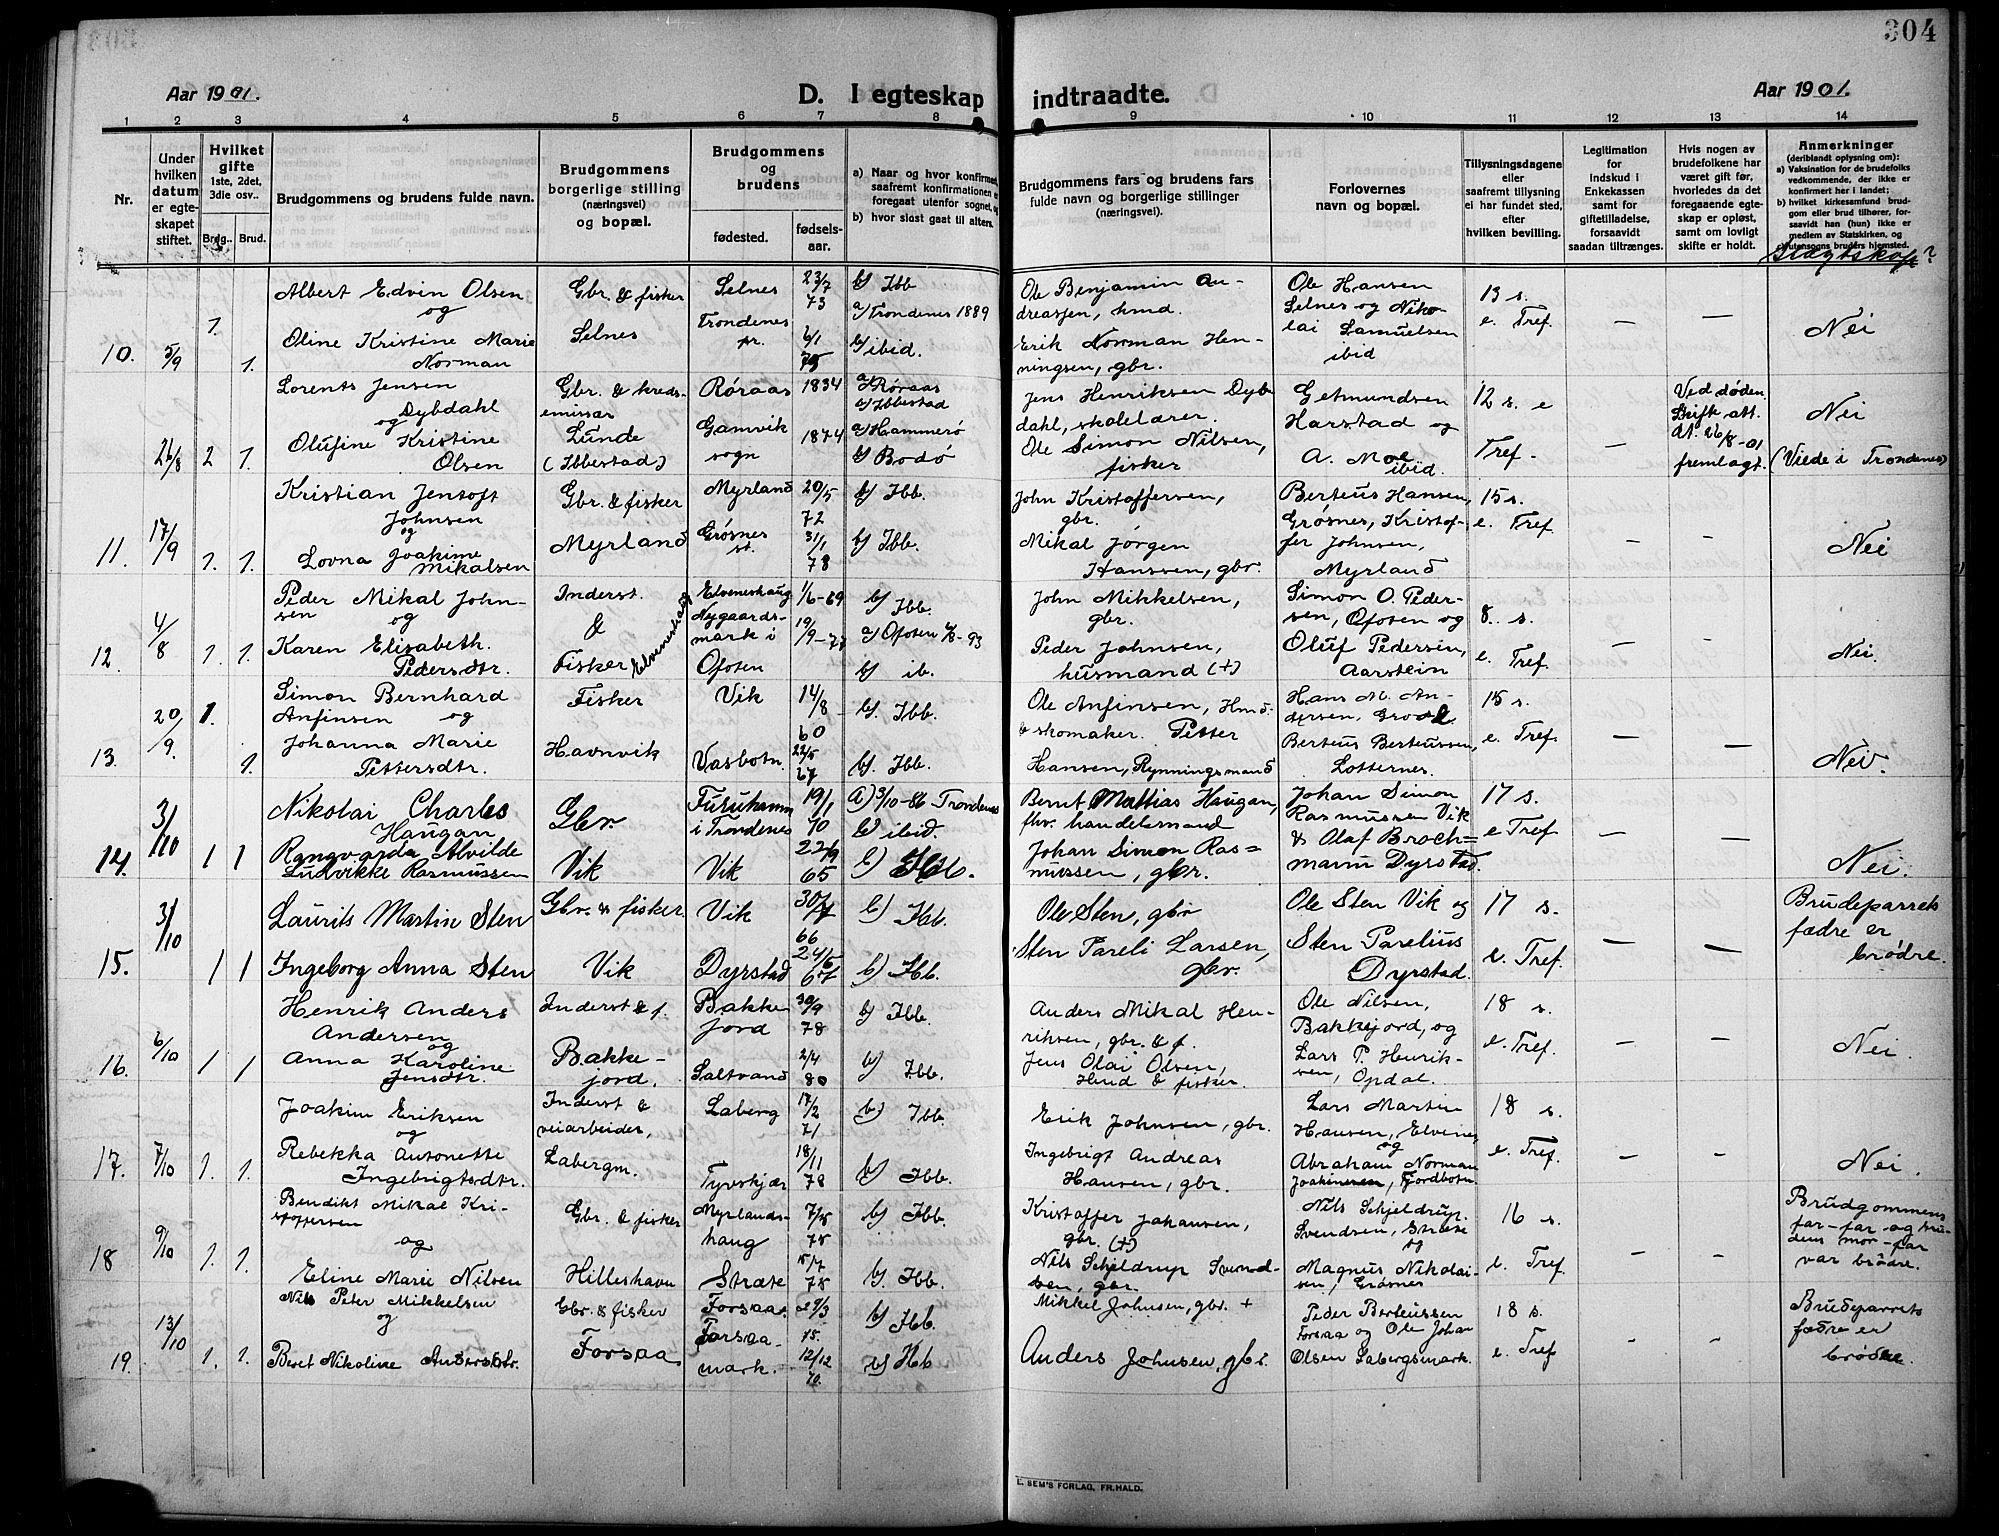 304
Aar 1901.
D. I egteskap indtraadte.
Aar 1901.
1 2 3 4 5 6 7 8 9 10 11 12 13 14
Nr.
Under hvilken datum er egteskapet stiftet.
Hvilket gifte 1ste, 2det, 3die osv..
Brdg.. Brud.
Brudgommens og brudens fulde navn.
Brudgommens borgerlige stilling (næringsvei) og bopæl.
Brudgommens og brudens
fødested.
fødselsaar.
a) Naar og hvor konfirmert, saafremt konfirmationen er foregaat utenfor sognet, og
b) hvor sidst gaat til alters.
Brudgommens fars og brudens fars fulde navn og borgerlige stillinger (næringsvei).
Forlovernes navn og bopæl.
Tillysningsdagene eller saafremt tillysning ei har fundet sted, efter hvilken bevilling.
Legitimation for Indskud i Enkekassen samt for giftetilladelse, forsaavidt saadan tiltrænges.
Hvis nogen av brudefolkene har været gift før, hvorledes da det foregaaende egteskap er opløst, samt om lovligt skifte er holdt.
Anmerkninger
(deriblandt oplysning om):
a) Vaksination for de brudefolks vedkommende, der ikke er konfirmert her i landet;
b) hvilket kirkesamfund brudgom eller brud tilhører, forsaavidt han (hun) ikke er medlem av Statskirken, og
utensogns bruders hjemsted.
Slægtskap?
10. 5/9 1. 1.
Albert Edvin Olsen
og
Oline Kristine Marie
Norman
Gbr. & fisker
Selnes
Selnes
Trondenes
pr.
23/7
73
6/1
75
b) Ibb
a) Trondenes 1889
b) ibid.
Ole Benjamin An-
dreassen, hmd.
Erik Norman Hen-
ningsen, gbr.
Ole Hansen
Selnes og Niko-
lai Samuelsen
ibid
13 s.
e. Tref.
— —
Nei
26/8 2 1.
Lorents Jensen
Dybdahl
og
Olufine Kristine
Olsen
Gbr. & kreds-
emissær
Lunde
(Ibbestad)
Røraas
Gamvik
sogn
1834
1874
a) Røraas
b) Ibbestad
a) Hammerø
b) Bodø
Jens Henriksen Dyb
dahl, skolelærer.
Ole Simon Nilsen,
fisker
Getmundsen
Harstad og
A. Moe
ibid.
12 s. e
Tref.
—
Ved døden.
Skifte att.
At. 26/8-01
fremlagt.
Nei
(Viede i Trondenes)
11. 17/9 1. 1.
Kristian Jentoft
Johnsen
og
Lovna Joakime
Mikalsen
Gbr. & fisker
Myrland
Myrland
Grøsnes
st.
20/5
72
31/1
78
b) Ibb.
b) Ibb.
John Kristoffersen,
gbr.
Mikal Jørgen
Hanssen, gbr.
Berteus Hansen,
Grøsnes, Kristof-
fer Johnsen,
Myrland
15 s.
e. Tref.
— —
Nei
12. 4/8 1. 1.
Peder Mikal John-
sen og
Karen Elisabeth.
Pedersdtr.
Inderst.
&
Fisker
Elveneshaug
Elveneshaug
Nygaards-
mark i
Ofoten
1/6-69
19/9-77
b) Ibb.
a) Ofoten 6/8-93
b) ib.
John Mikkelsen,
gbr.
Peder Johnsen,
husmand (+)
Simon O. Peder-
sen, Ofoten og
Oluf Pedersen,
Aarstein
8. s.
e. Tref.
— —
Nei.
13. 20/9. 1. 1.
Simon Bernhard
Anfinsen og
Johanna Marie
Pettersdtr.
Fisker
Havnvik
Vik
Vasbotn.
14/8
60
22/5
27
b). Ibb.
b). Ibb.
Ole Anfinsen, Hmd.
& skomaker. Petter
Hansen, Rynningsmand
Hans M. An-
dersen,
Berteus Berteussen,
Lotternes.
15 s.
e. Tref
— —
Nei.
14. 3/10 1 1
Nikolai Charles
Haugan
Rangvarda Alvilde
Ludvikke Rasmussen
Gbr.
Vik
Furuhamn
i Trondenes
Vik
19/1
70
22/9
65
a) 3/10-86 Trondenes
b) ibid.
b) Ibb.
Bernt Mathias Haugan,
fhv. handelsmand
Johan Simon Ras=
mussen, gbr.
Johan Simon
Rasmussen Vik
& Olaf Broch=
mann Dyrstad.
17 s.
e Tref
— —
Nei.
15. 3/10 1 1
Laurits Martin Sten
Ingeborg Anna Sten
Gbr. & fisker
Vik
Vik
Dyrstad
30/7
66
24/5
67
b) Ibb.
b) Ibb.
Ole Sten, gbr
Sten Pareli Larsen,
gbr.
Ole Sten Vik og
Sten Parelius
Dyrstad.
17 s.
e. Tref.
— —
Brudeparrets
fædre er
brødre.
16. 6/10 1 1
Henrik Anders
Andersen
og
Anna Karoline
Jensdtr.
Inderst & f.
Bakke-
jord.
Bakke
jord
Saltvand
30/9
78
2/4
80
b) Ibb.
b) Ibb.
Anders Mikal Hen-
riksen, gbr. & f.
Jens Olai Olsen,
Hmd & fisker.
Ole Nilsen,
Bakkejord, og
Lars P. Henrik-
sen, Opdal.
18 s.
e. Tref.
— —
Nei.
17. 7/10 1. 1.
Joakim Eriksen
og
Rebekka Antonette
Ingebrigtsdtr.
Inderst &
veiarbeider,
Labergm.
Laberg
Tyvskjær
17/2
71
18/11
78
b) Ibb.
b) Ibb.
Erik Johnsen, gbr.
Ingebrigt Andreas
Hansen, gbr.
Lars Martin
Hansen, Elvenes
og
Abraham Norman
Joakimsen, Fjordbotn
18 s.
e. Tref.
— —
Nei.
18 9/10 1. 1.
Bendikt Mikal Kri-
stoffersen
og
Eline Marie Nilsen
Gbr. & fisker
Hilleshavn
Myrlands-
haug
Stræte
78
78
b) Ibb.
b). Ibb.
Kristoffer Johansen,
gbr. (+)
Nils Schjeldrup Svend-
sen, gbr.
Nils Schjeldrup
Svendsen, Stræte
og
Magnus Nikolai-
sen, Grøsnes
16 s.
e. Tref.
— —
Brudgommens
far-far og bru-
dens mor-far
var brødre.
19. 13/10 1. 1.
Nils Peter Mikkelsen
og
Beret Nikoline Andersdtr.
Gbr. & fisker
Forsaa
Forsaa
Forsaa-
mark.
27/3
75.
12/12
70.
b) Ibb.
b) Ibb
Mikkel Johnsen, gbr. +
Anders Johnsen, gbr.
Peder Berteussen
Forsaa og Ole Johan
Olsen Labergsmark.
18 s.
e. Tref
— —
Brudeparrets
fædre er
brødre.
L. SEM'S FORLAG, FR.HALD.